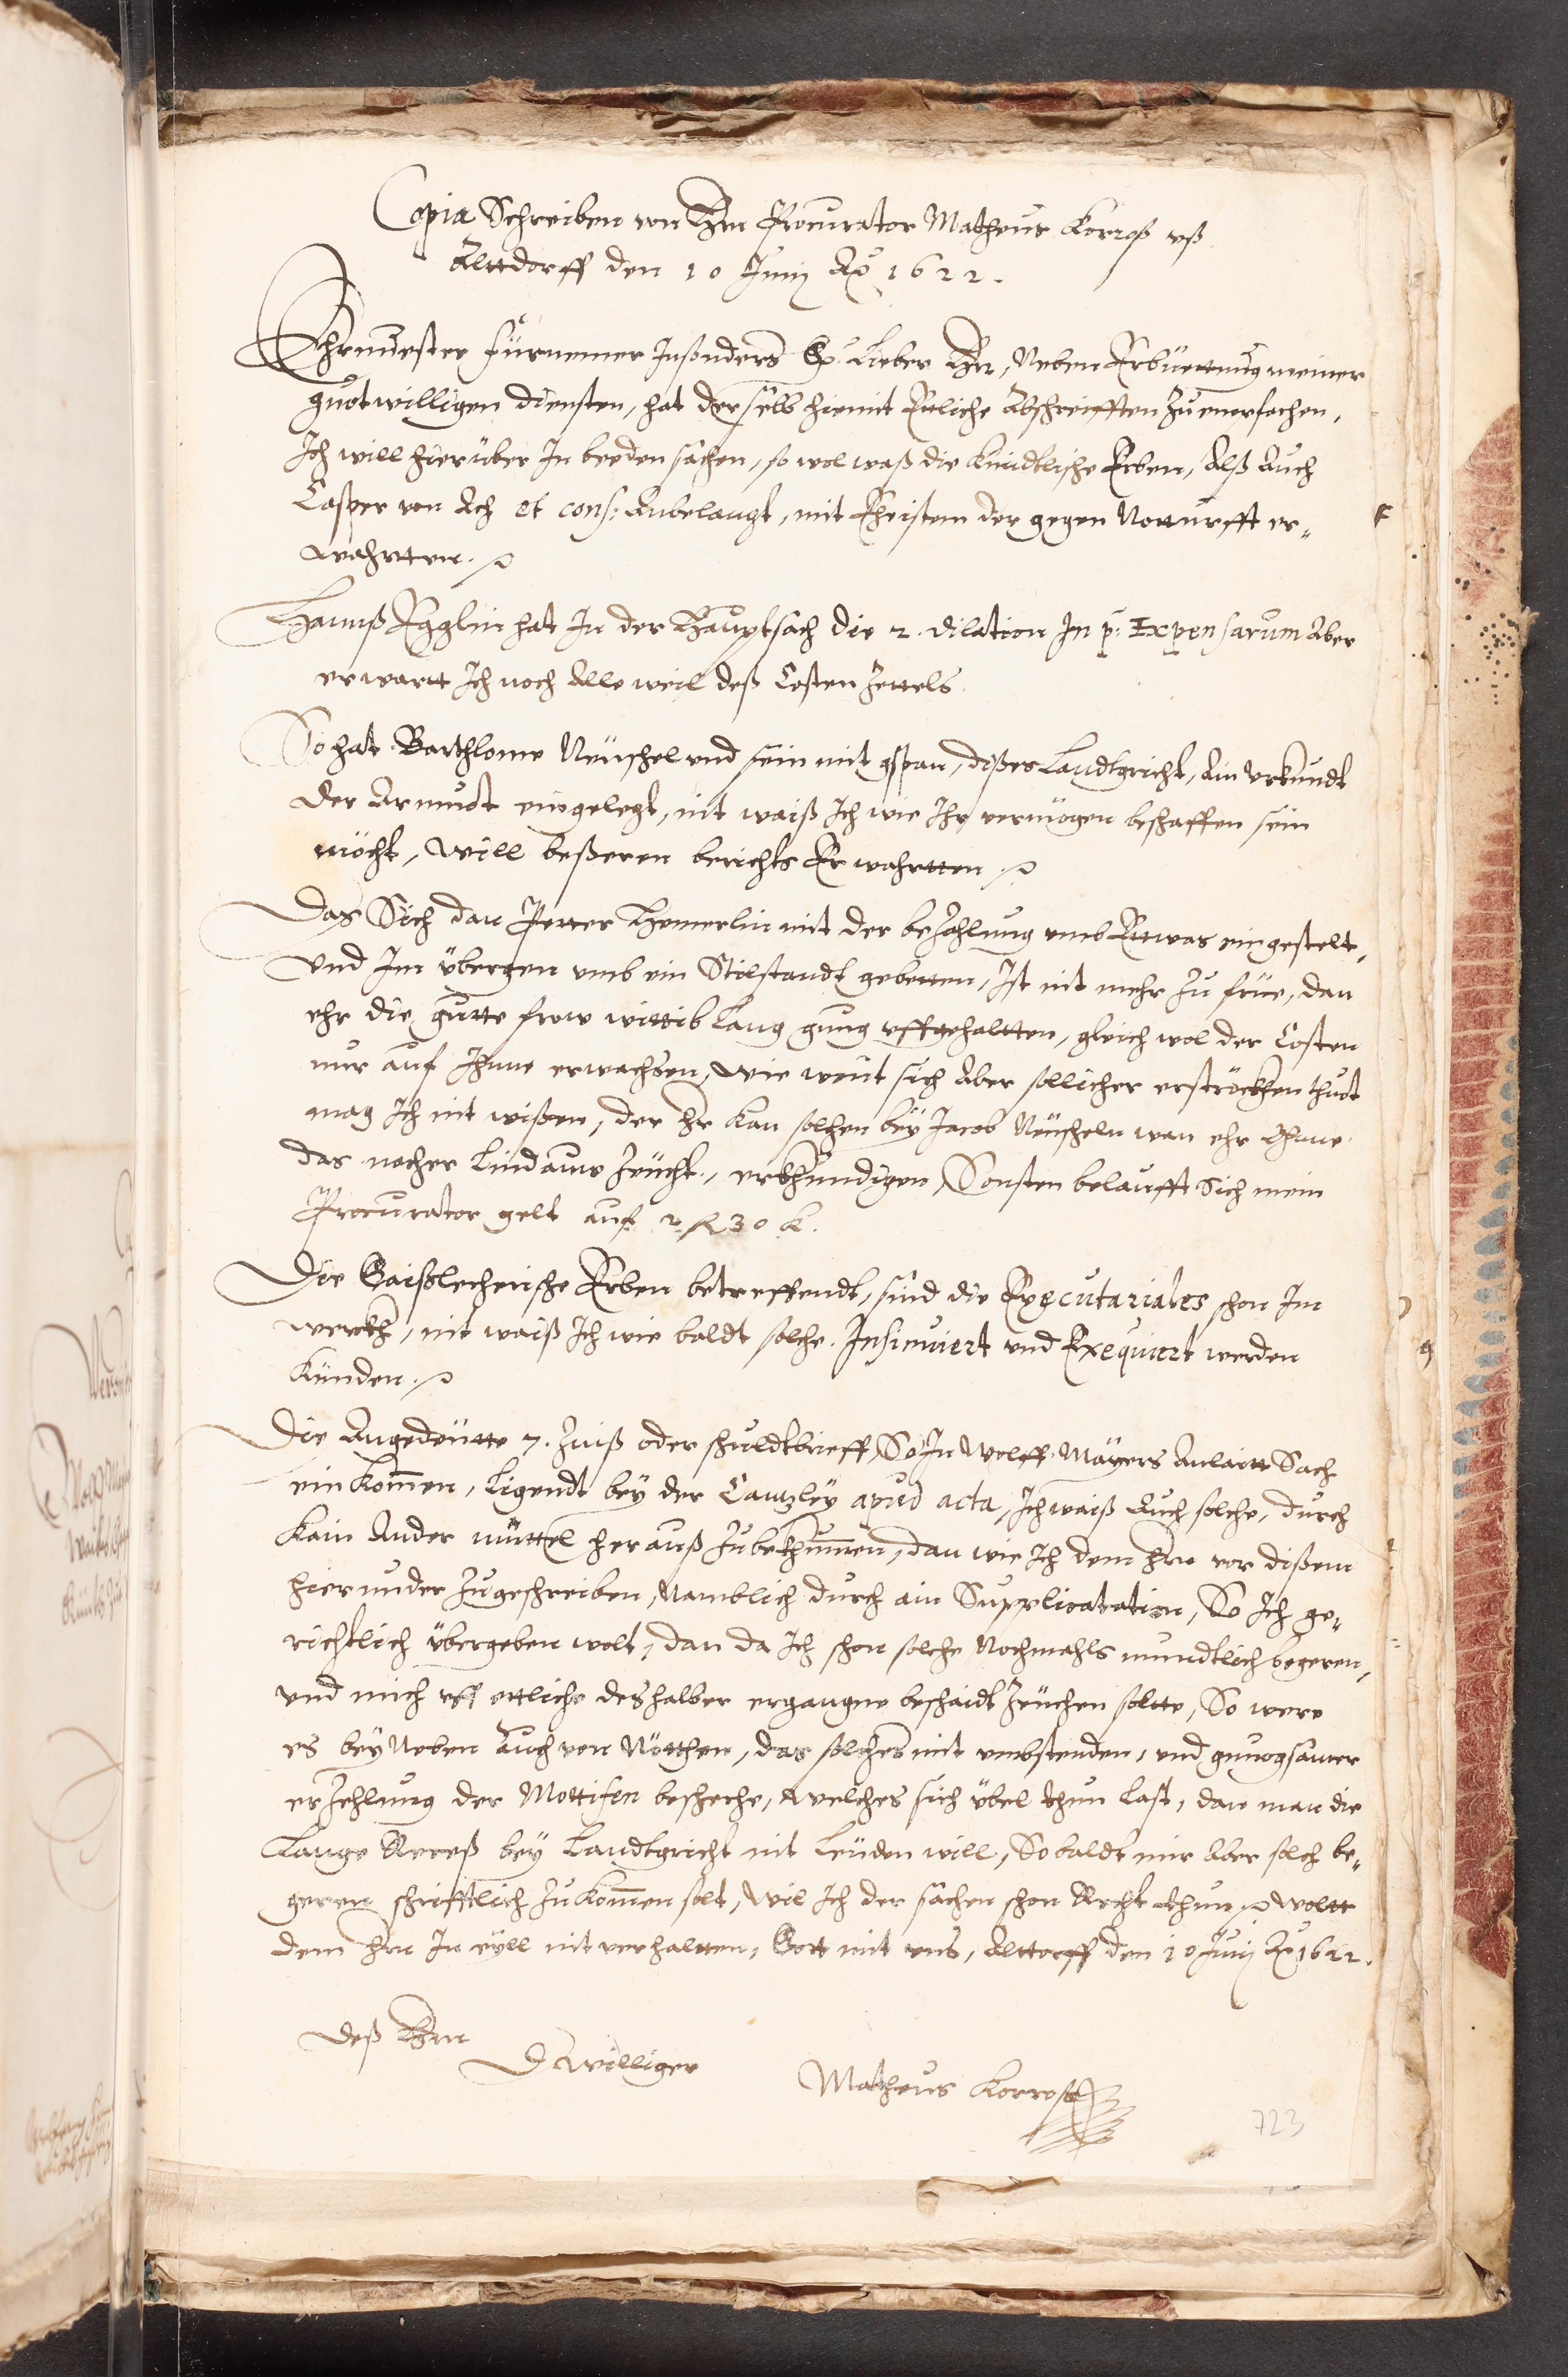 Copia Schreiben von Hrn Procurator Matheus Korroß vß
Alttdorff den 10 Junij Ao 1622.
Ehrnuester fürnemer Jnßonders Lieber Hr, Neben Erbüettung meiner
guotwilligen diensten, hat derselb hiemit Etliche Abschrifften zu empfachen,
Jch will hierüber Jn beeden sachen, so wol waß die Erben, Alß Auch
Casper von Ach et cons: Anbelangt, mit der gegen Notturfft er„
wahrtten.
Hannß Egglin hat Jn der Hauptsach die 2. dilation Jn p: Expensarum Aber
erwartt Jch noch Alle weil deß Costen Zettels
So hat Barthlome Neuschel vnd sein mit gspan, dißes Landtgricht, Ain Vrkundt
der Armuot eingelegt, nit waiß Jch wie Jhr vermögen beschaffen sein
möcht, Will beßeren berichts Erwahrtten
Das Sich dan Petter Hemerlin mit der bezahlung vmb Ettwas eingestelt,
Vnd Jm übergen vmb ein Stilstandt gebetten, Jst nit mehr zu früe, dan
ehr die gutte frow wittib lang gnug vffgehaltten, gleich wol der Costen
nur auf Jhme erwachsen, Wie weit sich Aber sollicher erströckhen thuot
mag Jch nit wißen, der hr kan solchen beÿ Jacob Neuscheln wan ehr
das nacher Lindauw Zeücht, erkhundigen, Sonsten belaufft Sich mein
Procurator gelt auf 2 fl 30 k.
Die Gaißlecherische Erben betreffendt, sind die Executariales schon Jm
werckh, nit waiß Jch wie baldt solche Jnsinuiert vnd Exequiert werden
künden.
Die Angedeutte 7. Zinß oder schuldtbrieff, So Jn Wolff Mayers Anlaitt Sach
einkommen, ligendt beÿ der Cantzleÿ apud acta, Jch waiß Auch solche, durch
Kain Ander mittel herauß zubekhummen, dan wie Jch dem hrn vor dißem
hierunder zugeschreiben, Namblich durch ain Supplicatation, So Jch ge„
richtlich übergeben wolt, dan da Jch schon solche Nochmahls mundtlich begeren,
vnd mich vff ettliche deshalber ergangne beschaidt Zeüchen soltte, So were
es beÿ Neben Auch von Nötthen, das solches mit vmbstenden, vnd gnuogsamer
erzehlung der Mottifen beschehe, Welches sich übel thun last, dan man die
Lange Receß beÿ Landtgricht nit Leiden will, So baldt mir Aber solch be„
geren schrifftlich zukommen solt, Wil Jch der sachen schon Recht thun woltt
dem hrn Jn eÿll nit verhaltten, Gott mit vns, Alttorff den 10 Junij Ao 1622.
Deß Hrn
D. williger
Matheus Korroß
723